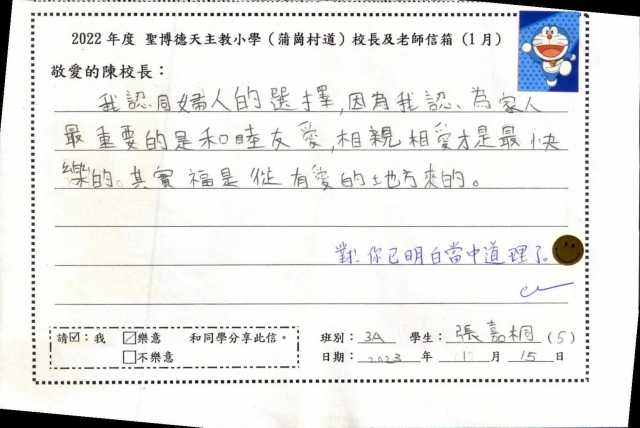 2022 年度 聖博德天主教小學（蒲崗村道）校長及老師信箱（1 月）
敬愛的陳校長：
我認同婦人的選擇,因為我認為家人
最重要的是和睦友愛,相親相愛才是最快
樂的。其實福是從有愛的地方來的。
對!你已明白當中道理了。
請☑：我 ☑樂意 和同學分享此信。
□不樂意
班別：3A 學生：張嘉桐 (5)
日期：2023 年 1 月 15 日